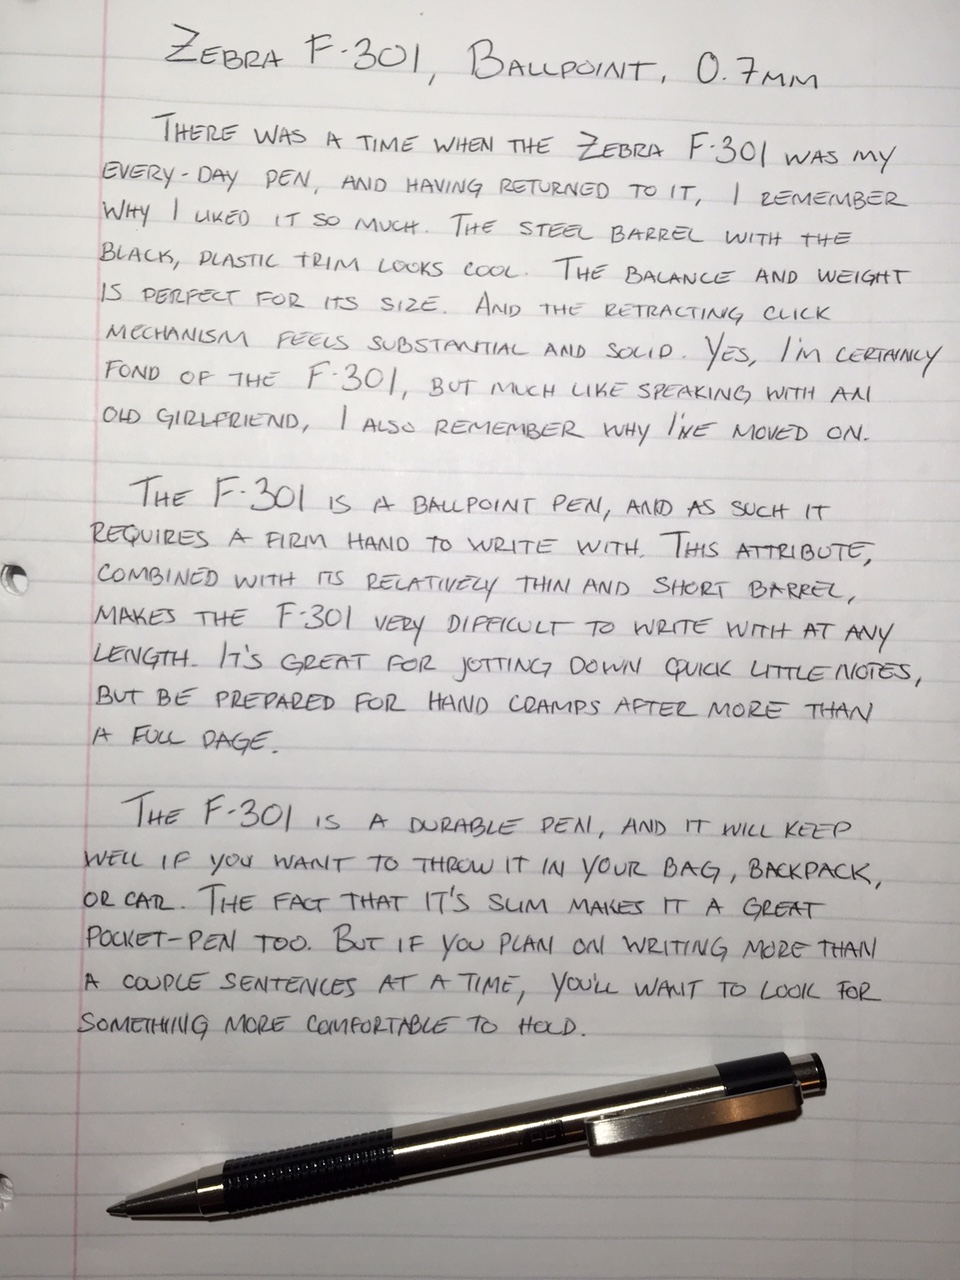 ZEBRA F-301, BALLPOINT, 0.7MM
THERE WAS A TIME WHEN THE ZEBRA F-301 WAS MY
EVERY-DAY PEN, AND HAVING RETURNED TO IT, I REMEMBER
WHY I LIKED IT SO MUCH. THE STEEL BARREL WITH THE
BLACK, PLASTIC TRIM LOOKS COOL. THE BALANCE AND WEIGHT
IS PERFECT FOR ITS SIZE. AND THE RETRACTING CLICK
MECHANISM FEELS SUBSTANTIAL AND SOLID. YES, I'M CERTAINLY
FOND OF THE F-301, BUT MUCH LIKE SPEAKING WITH AN
OLD GIRLFRIEND, I ALSO REMEMBER WHY I'VE MOVED ON.
THE F-301 IS A BALLPOINT PEN, AND AS SUCH IT
REQUIRES A FIRM HAND TO WRITE WITH. THIS ATTRIBUTE,
COMBINED WITH ITS RELATIVELY THIN AND SHORT BARREL,
MAKES THE F-301 VERY DIFFICULT TO WRITE WITH AT ANY
LENGTH. IT'S GREAT FOR JOTTING DOWN QUICK LITTLE NOTES,
BUT BE PREPARED FOR HAND CRAMPS AFTER MORE THAN
A FULL PAGE.
THE F-301 IS A DURABLE PEN, AND IT WILL KEEP
WELL IF YOU WANT TO THROW IT IN YOUR BAG, BACKPACK,
OR CAR. THE FACT THAT IT'S SLIM MAKES IT A GREAT
POCKET-PEN TOO. BUT IF YOU PLAN ON WRITING MORE THAN
A COUPLE SENTENCES AT A TIME, YOU'LL WANT TO LOOK FOR
SOMETHING MORE COMFORTABLE TO HOLD.